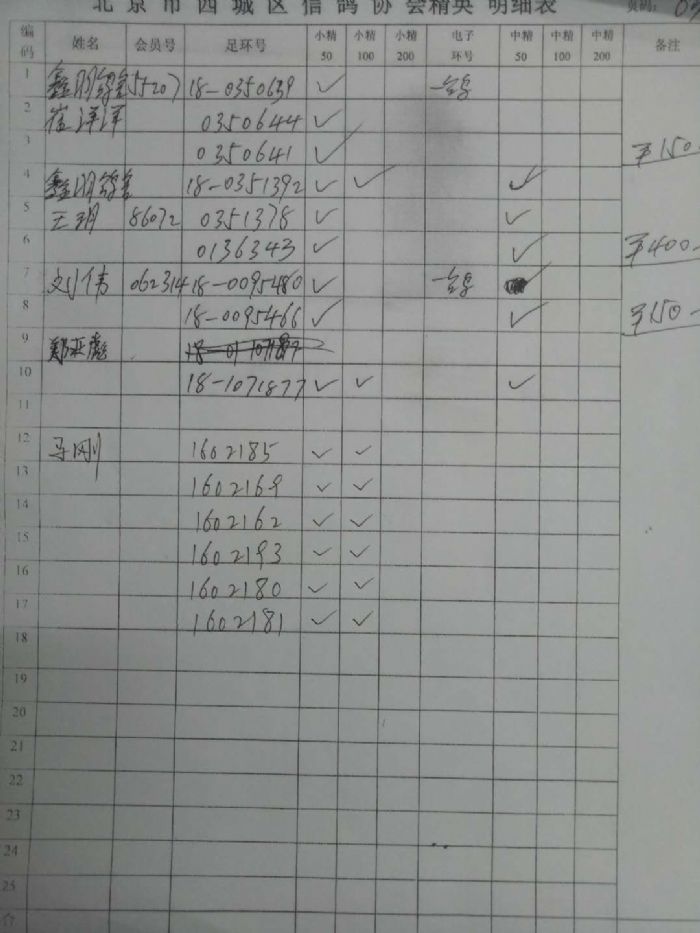 北京市西城区信鸽协会精英 明细表 页码: 03
编码 姓名 会员号 足环号 小精50 小精100 小精200 电子环号 中精50 中精100 中精200 备注
1 55207 18-0350639 ✓
2 崔洋洋 0350644 ✓
3 0350641 ✓ ¥150
4 18-0351392 ✓ ✓ ✓
5 王玥 86072 0351378 ✓ ✓
6 0136343 ✓ ✓ ¥400-
7 刘伟 062314 18-0095480 ✓ ✓
8 18-0095466 ✓ ✓ ¥150-
9 郑亚彪
10 18-1071877 ✓ ✓ ✓
11
12 马刚 1602185 ✓ ✓
13 1602169 ✓ ✓
14 1602162 ✓ ✓
15 1602193 ✓ ✓
16 1602180 ✓ ✓
17 1602181 ✓ ✓
18
19
20
21
22
23
24
25
合